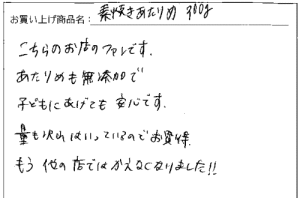 お買い上げ商品名：素焼きあたりめ 300g
こちらのお店のファンです。
あたりめも無添加で
子どもにあげても安心です。
量も沢山はいっているのでお買得。
もう他の店ではかえなくなりました!!